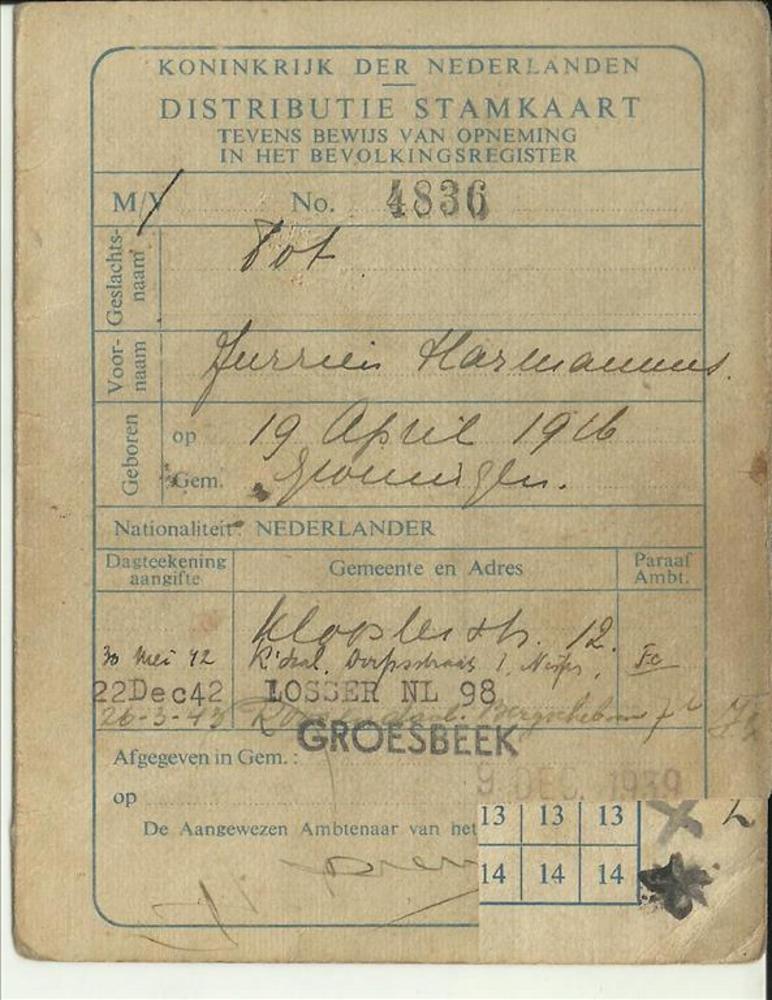 KONINKRIJK DER NEDERLANDEN
DISTRIBUTIE STAMKAART
TEVENS BEWIJS VAN OPNEMING
IN HET BEVOLKINGSREGISTER
M/V No. 4836
Geslachts-
naam
Tot
Voor-
naam
Jurrien Harmannus.
Geboren
op 19 April 1916
Gem. Groningen.
Nationaliteit: NEDERLANDER
Dagteekening
aangifte
Gemeente en Adres
Paraaf
Ambt.
Kloosterstr. 12.
30 Mei 42 Dorpsstraat 1,
22Dec42 LOSSER NL 98
26-3-43
GROESBEEK
Afgegeven in Gem.:
9 DEC. 1939
op
De Aangewezen Ambtenaar van het
13 13 13
14 14 14